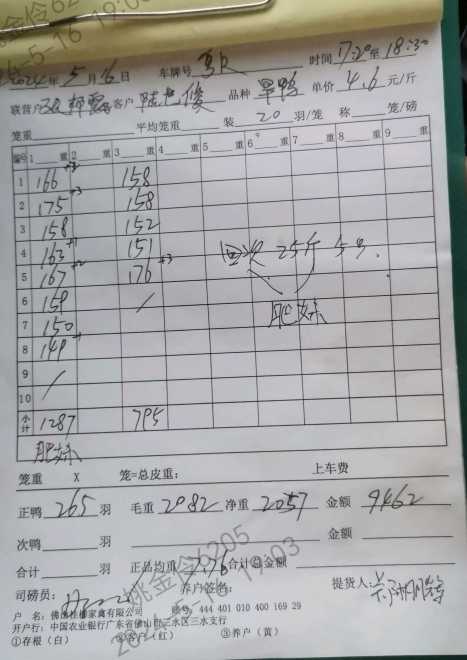 2024年5月16日 车牌号 时间17:20至18:30
联营户 客户 品种 旱鸭 单价4.6元/斤
笼重 平均笼重 装20羽/笼 称 笼/磅
编号 1 重 2 重 3 重 4 重 5 重 6 重 7 重 8 重 9 重
1 166 +3 158
2 175 +3 158
3 158 152
4 163 +1 151
5 167 +2 176 +3 回收 25斤 5只.
6 159 / 肥妹
7 150
8 149
9 /
10
小计 1287 795
肥妹
笼重 X 笼=总皮重: 上车费
正鸭 265 羽 毛重 2082 净重 2057 金额 9462
次鸭 羽 金额
合计 羽 正品均重 7.76 合计金额
司磅员: 养户签名: 提货人:
户 名: 佛山桂柳家禽有限公司 账号: 444 401 010 400 169 29
开户行: 中国农业银行广东省佛山市三水区三水支行
①存根(白) ②客户(红) ③养户(黄)
姚金伶6205
19:03